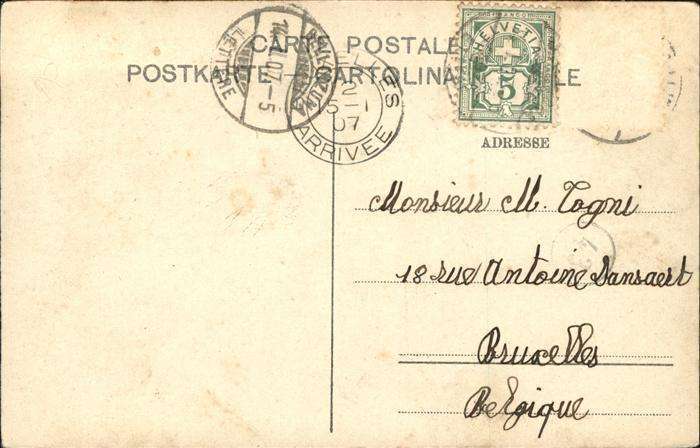 CARTE POSTALE
POSTKARTE — CARTOLINA
HELVETIA
FRANCO
5
14. I. 07.-5
LES
12
5-I
07
ARRIVÉE
ADRESSE
Monsieur M. Togni
18 rue Antoine Dansaert
Bruxelles
Belgique